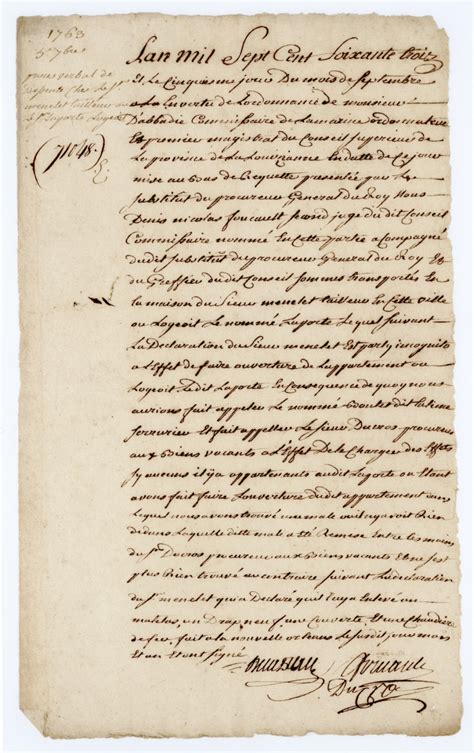 1763
5 7bre
procès verbal de
chez le Sr
menelet tailleur
Laporte
(71048.)
Lan mil Sept Cent Soixante trois
Et Le Cinquieme jour Du mois de Septembre
a La de Lordonnance de monsieur
Dabbadie Commissaire de La marine ordonnateur
Et premier magistrat du Conseil Superieur de
La province de La Louisianne En datte de Ce jour
mise au bas de Requette presentée par Le
Substitut du procureur General du Roy Nous
Denis nicolas foucault Second juge du dit Conseil
Commissaire nommé En Cette partie a Compagné
du dit Substitut du procureur General du Roy Et
du Greffier du dit Conseil Sommes transportés En
La maison du Sieur menelet tailleur En Cette ville
ou Logeoit Le nommé Laporte Lequel suivant
La Declaration du Sieur menelet Est party incognito
a LEffet de faire ouverture de Lappartement ou
Logeoit Ledit Laporte En Consequence de quoy nous
aurions fait appeler Le nommé dit
Serrurier Et fait appeller Le Sieur Ducros procureur
aux biens vacants a LEffet De Le Charger des Effets
Sy aucuns il y a appartenants audit Laporte ou Etant
avons fait faire Louverture dudit appartement dans
Lequel nous avons trouvé une male ou il ny avoit Rien
dedans Laquelle ditte male a été Remise Entre les mains
du Sr. Ducros procureur aux biens vacants Et ne sest
plus Rien trouvé au contraire suivant La declaration
du Sr. menelet qui a Declaré quil luy a Enlevé un
matelas, un Drap neuf, une Couverte, Et une Chaudiere
de fer, fait a la nouvelle orleans Le jour Et an Et ont signé
foucault
Ducros